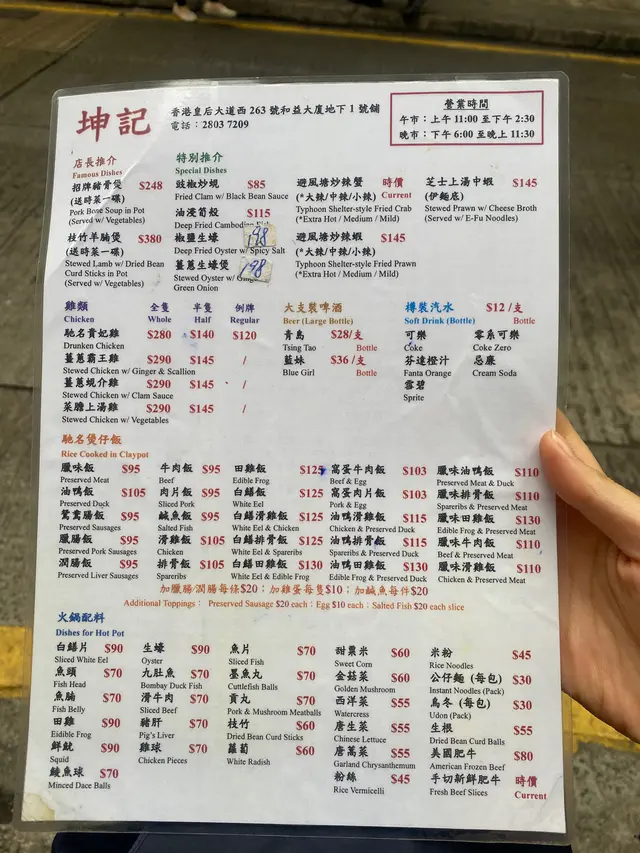 坤記
香港皇后大道西 263 號和益大廈地下 1 號舖
電話：2803 7209
營業時間
午市：上午 11:00 至下午 2:30
晚市：下午 6:00 至晚上 11:30
店長推介
Famous Dishes
招牌豬骨煲 $248
(送時菜一碟)
Pork Bone Soup in Pot
(Served w/ Vegetables)
枝竹羊腩煲 $380
(送時菜一碟)
Stewed Lamb w/ Dried Bean
Curd Sticks in Pot
(Served w/ Vegetables)
特別推介
Special Dishes
豉椒炒蜆 $85
Fried Clam w/ Black Bean Sauce
油浸筍殼 $115
Deep Fried
椒鹽生蠔 198
Deep Fried Oyster w/ Spicy Salt
薑蔥生蠔煲 198
Stewed Oyster w/
Green Onion
避風塘炒辣蟹 時價
(*大辣/中辣/小辣) Current
Typhoon Shelter-style Fried Crab
(*Extra Hot / Medium / Mild)
避風塘炒辣蝦 $145
(*大辣/中辣/小辣)
Typhoon Shelter-style Fried Prawn
(*Extra Hot / Medium / Mild)
芝士上湯中蝦 $145
(伊麵底)
Stewed Prawn w/ Cheese Broth
(Served w/ E-Fu Noodles)
雞類 全隻 半隻 例牌
Chicken Whole Half Regular
馳名貴妃雞 $280 $140 $120
Drunken Chicken
薑蔥霸王雞 $290 $145 /
Stewed Chicken w/ Ginger & Scallion
薑蔥蜆介雞 $290 $145 /
Stewed Chicken w/ Clam Sauce
菜膽上湯雞 $290 $145 /
Stewed Chicken w/ Vegetables
大支裝啤酒
Beer (Large Bottle)
青島 $28/支
Tsing Tao Bottle
藍妹 $36/支
Blue Girl Bottle
樽裝汽水 $12/支
Soft Drink (Bottle) Bottle
可樂 零系可樂
Coke Coke Zero
芬達橙汁 忌廉
Fanta Orange Cream Soda
雪碧
Sprite
馳名煲仔飯
Rice Cooked in Claypot
臘味飯 $95 牛肉飯 $95 田雞飯 $125 窩蛋牛肉飯 $103 臘味油鴨飯 $110
Preserved Meat Beef Edible Frog Beef & Egg Preserved Meat & Duck
油鴨飯 $105 肉片飯 $95 白鱔飯 $125 窩蛋肉片飯 $103 臘味排骨飯 $110
Preserved Duck Sliced Pork White Eel Pork & Egg Spareribs & Preserved Meat
鴛鴦腸飯 $95 鹹魚飯 $95 白鱔滑雞飯 $125 油鴨滑雞飯 $115 臘味田雞飯 $130
Preserved Sausages Salted Fish White Eel & Chicken Chicken & Preserved Duck Edible Frog & Preserved Meat
臘腸飯 $95 滑雞飯 $105 白鱔排骨飯 $125 油鴨排骨飯 $115 臘味牛肉飯 $110
Preserved Pork Sausages Chicken White Eel & Spareribs Spareribs & Preserved Duck Beef & Preserved Meat
潤腸飯 $95 排骨飯 $105 白鱔田雞飯 $130 油鴨田雞飯 $130 臘味滑雞飯 $110
Preserved Liver Sausages Spareribs White Eel & Edible Frog Edible Frog & Preserved Duck Chicken & Preserved Meat
加臘腸/潤腸每條$20；加雞蛋每隻$10；加鹹魚每件$20
Additional Toppings： Preserved Sausage $20 each；Egg $10 each；Salted Fish $20 each slice
火鍋配料
Dishes for Hot Pot
白鱔片 $90 生蠔 $90 魚片 $70 甜粟米 $60 米粉 $45
Sliced White Eel Oyster Sliced Fish Sweet Corn Rice Noodles
魚頭 $70 九肚魚 $70 墨魚丸 $70 金菇菜 $60 公仔麵 (每包) $30
Fish Head Bombay Duck Fish Cuttlefish Balls Golden Mushroom Instant Noodles (Pack)
魚腩 $70 滑牛肉 $70 貢丸 $70 西洋菜 $55 烏冬 (每包) $30
Fish Belly Sliced Beef Pork & Mushroom Meatballs Watercress Udon (Pack)
田雞 $90 豬肝 $70 枝竹 $60 唐生菜 $55 生根 $55
Eidible Frog Pig's Liver Dried Bean Curd Sticks Chinese Lettuce Dried Bean Curd Balls
鮮魷 $90 雞球 $70 蘿蔔 $60 唐萬菜 $55 美國肥牛 $80
Squid Chicken Pieces White Radish Garland Chrysanthemum American Frozen Beef
鯪魚球 $70 粉絲 $45 手切新鮮肥牛 時價
Minced Dace Balls Rice Vermicelli Fresh Beef Slices Current